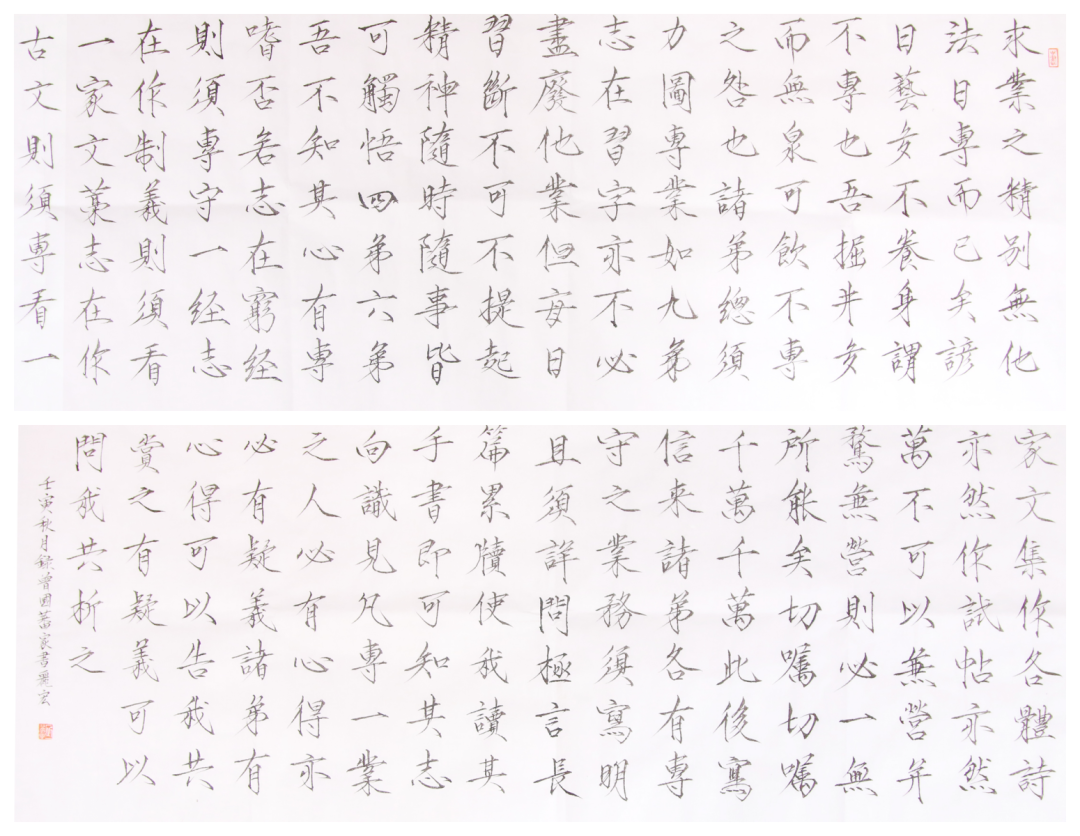 求業之精別無他
法曰專而已矣諺
曰藝多不養身謂
不專也吾掘井多
而無泉可飲不專
之咎也諸弟總須
力圖專業如九弟
志在習字亦不必
盡廢他業但每日
習斷不可不提起
精神隨時隨事皆
可觸悟四弟六弟
吾不知其心有專
嗜否若志在窮経
則須專守一経志
在作制義則須看
一家文藁志在作
古文則須專看一
家文集作各體詩
亦然作試帖亦然
萬不可以兼營并
騖無營則必一無
所能矣切囑切囑
千萬千萬此後寫
信來諸弟各有專
守之業務須寫明
且須詳問極言長
篇累牘使我讀其
手書即可知其志
向識見凡專一業
之人必有心得亦
必有疑義諸弟有
心得可以告我共
賞之有疑義可以
問我共析之
壬寅秋月錄曾國藩家書麗玄